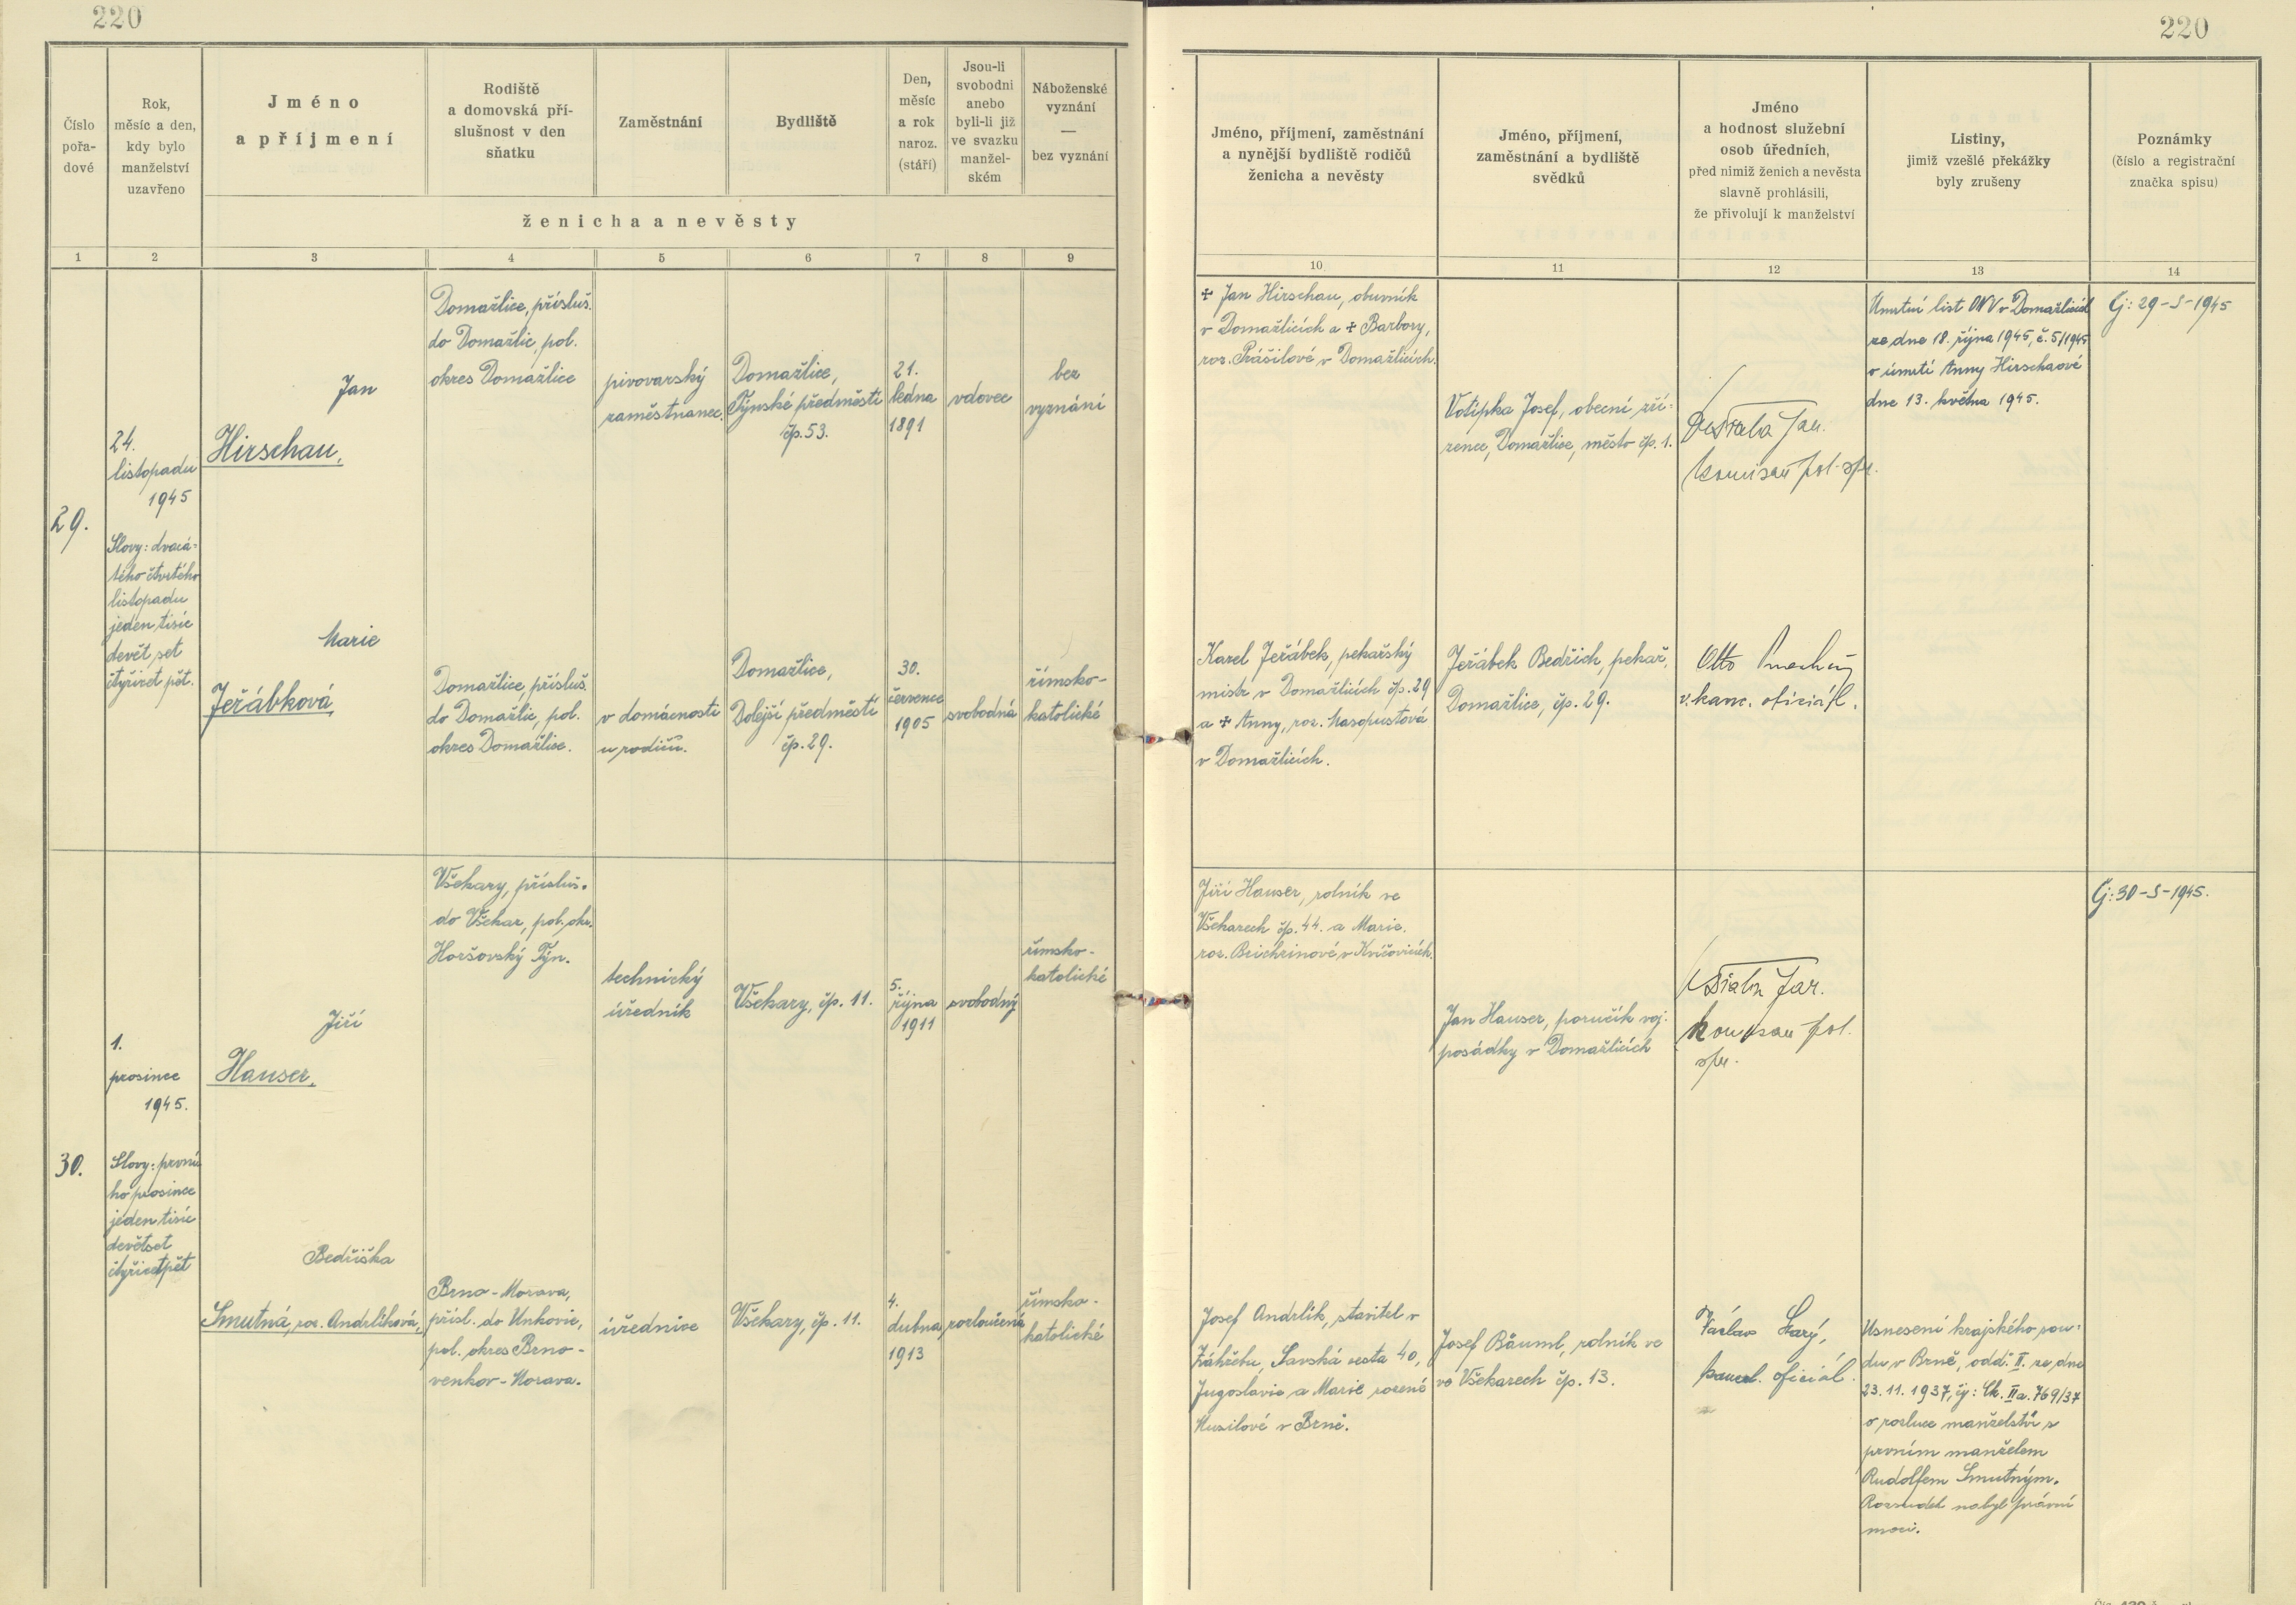 220
220
Číslo
pořa-
dové
Rok,
měsíc a den,
kdy bylo
manželství
uzavřeno
Jméno
a příjmení
Rodiště
a domovská pří-
slušnost v den
sňatku
Zaměstnání
Bydliště
Den,
měsíc
a rok
naroz.
(stáří)
Jsou-li
svobodni
anebo
byli-li již
ve svazku
manžel-
ském
Náboženské
vyznání
—
bez vyznání
ženicha a nevěsty
Jméno, příjmení, zaměstnání
a nynější bydliště rodičů
ženicha a nevěsty
Jméno, příjmení,
zaměstnání a bydliště
svědků
Jméno
a hodnost služební
osob úředních,
před nimiž ženich a nevěsta
slavně prohlásili,
že přivolují k manželství
Listiny,
jimiž vzešlé překážky
byly zrušeny
Poznámky
(číslo a registrační
značka spisu)
1 2 3 4 5 6 7 8 9 10 11 12 13 14
29.
24.
listopadu
1945
Slovy: dvacá-
tého čtvrtého
listopadu
jeden tisíc
devět set
čtyřicet pět.
Jan
Hirschau,
Domažlice, přísluš.
do Domažlic, pol.
okres Domažlice
pivovarský
zaměstnanec
Domažlice,
Týnské předměstí
čp. 53.
21.
ledna
1891
vdovec
bez
vyznání
✝ Jan Hirschau, obuvník
v Domažlicích a ✝ Barbory,
roz. Prášilové v Domažlicích.
Votipka Josef, obecní zří-
zenec, Domažlice, město čp. 1.
Jar.
komisař pol. spr.
Úmrtní list ONV v Domažlicích
ze dne 18. října 1945, č. 5/1945
o úmrtí Anny Hirschaové
dne 13. května 1945.
Čj: 29-S-1945
Marie
Jeřábková,
Domažlice, přísluš.
do Domažlic, pol.
okres Domažlice.
v domácnosti
u rodičů.
Domažlice,
Dolejší předměstí
čp. 29.
30.
července
1905
svobodná
římsko-
katolické
Karel Jeřábek, pekařský
mistr v Domažlicích čp. 29
a ✝ Anny, roz. Masopustová
v Domažlicích.
Jeřábek Bedřich, pekař,
Domažlice, čp. 29.
Otto
v. kanc. oficiál.
30.
1.
prosince
1945.
Slovy: první-
ho prosince
jeden tisíc
devětset
čtyřicetpět
Jiří
Hauser,
Všekary, přísluš.
do Všekar, pol. okr.
Horšovský Týn.
technický
úředník
Všekary, čp. 11.
5.
října
1911
svobodný
římsko-
katolické
Jiří Hauser, rolník ve
Všekarech čp. 44. a Marie,
roz. Brichzinové v Kvíčovicích.
Jan Hauser, poručík voj.
posádky v Domažlicích
Jar.
komisař pol.
spr.
Čj: 30-S-1945.
Bedřiška
Smutná, roz. Andrlíková,
Brno-Morava,
přísl. do Unkovic,
pol. okres Brno-
venkov-Morava.
úřednice
Všekary, čp. 11.
4.
dubna
1913
rozloučená
římsko-
katolické
Josef Andrlík, stavitel v
Záhřebu, Savská cesta 40,
Jugoslavie a Marie rozené
Musilové v Brně.
Josef Bäuml, rolník ve
ve Všekarech čp. 13.
Václav Starý,
kancel. oficiál.
Usnesení krajského sou-
du v Brně, odd. II. ze dne
23. 11. 1937, čj: Ck. IIa. 769/37
o rozluce manželství s
prvním manželem
Rudolfem Smutným.
Rozsudek nabyl právní
moci.